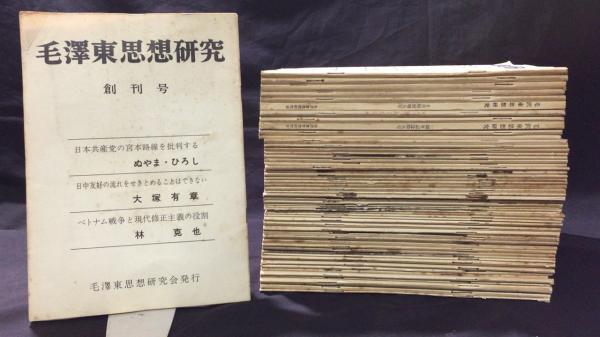 毛澤東思想研究
創刊号
日本共産党の宮本路線を批判する
ぬやま・ひろし
日中友好の流れをせきとめることはできない
大塚有章
ベトナム戦争と現代修正主義の役割
林克也
毛澤東思想研究会発行
毛沢東思想研究
毛沢東思想研究